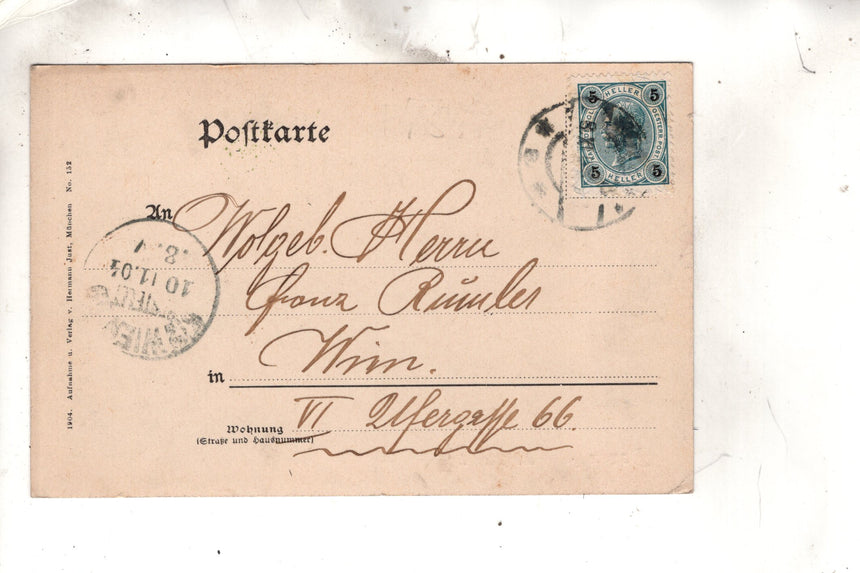 Postkarte
5 HELLER 5
OESTERR. POST.
5 HELLER 5
An Wolgeb. Herrn
Franz Rumler
in Wien.
Wohnung
(Straße und Hausnummer)
VI Ufergasse 66.
WIEN
10 11.04
.8.V
1904. Aufnahme u. Verlag v. Hermann Jost, München No. 152